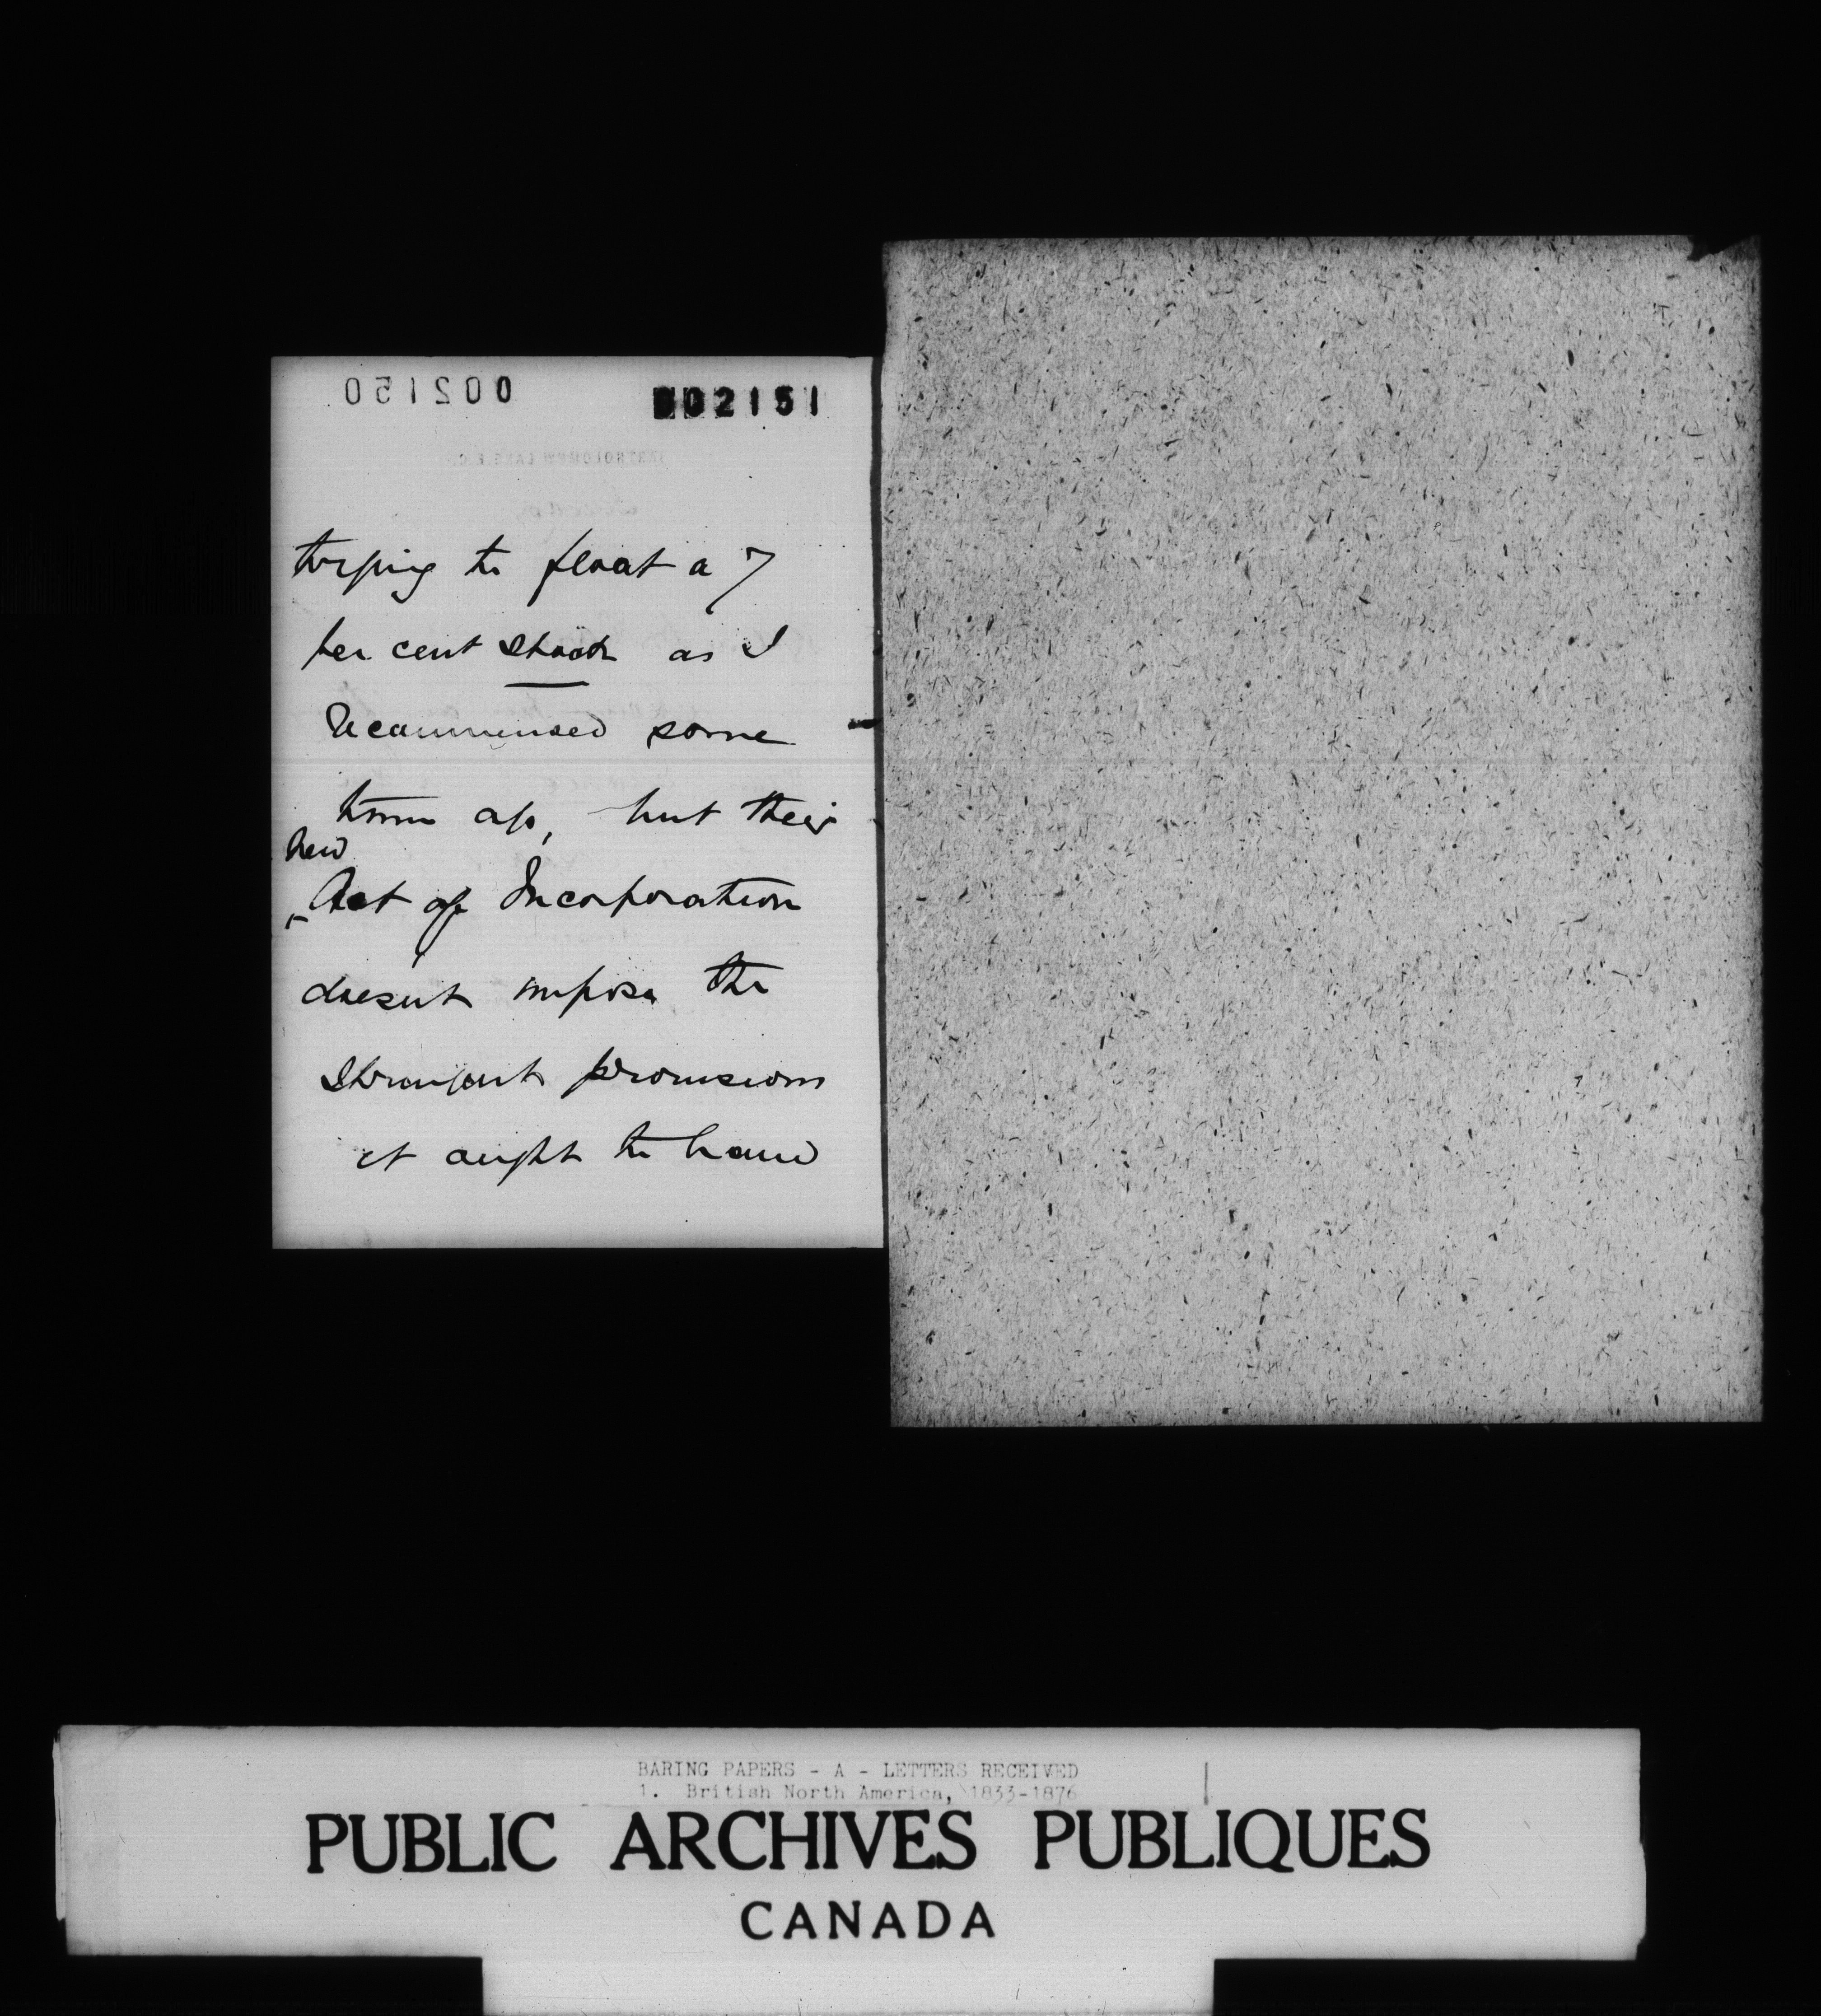 002150
002151
BARTHOLOMEW LANE.E.C.
trying to float a 7
per cent stock as I
recommended some
time ago, but their
new
Act of Incorporation
doesnt impose the
stringent provisions
it ought to have
BARING PAPERS - A - LETTERS RECEIVED
1. British North America, 1833-1876
PUBLIC ARCHIVES PUBLIQUES
CANADA